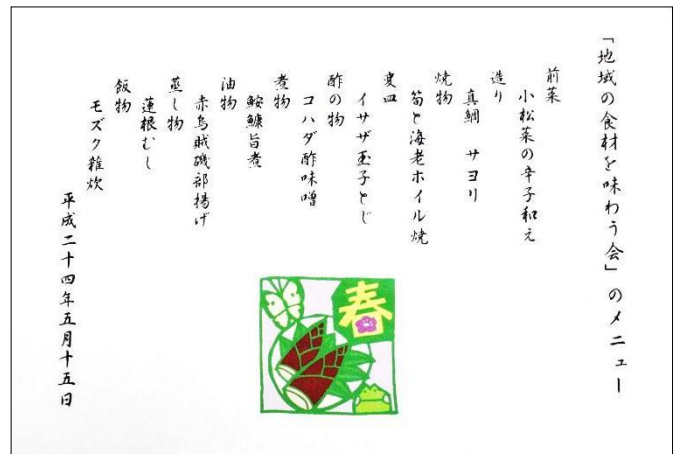 「地域の食材を味わう会」のメニュー
前菜
小松菜の辛子和え
造り
真鯛　サヨリ
焼物
筍と海老ホイル焼
変皿
イサザ玉子とじ
酢の物
コハダ酢味噌
煮物
鮟鱇旨煮
油物
赤烏賊磯部揚げ
蒸し物
蓮根むし
飯物
モズク雑炊
平成二十四年五月十五日
春